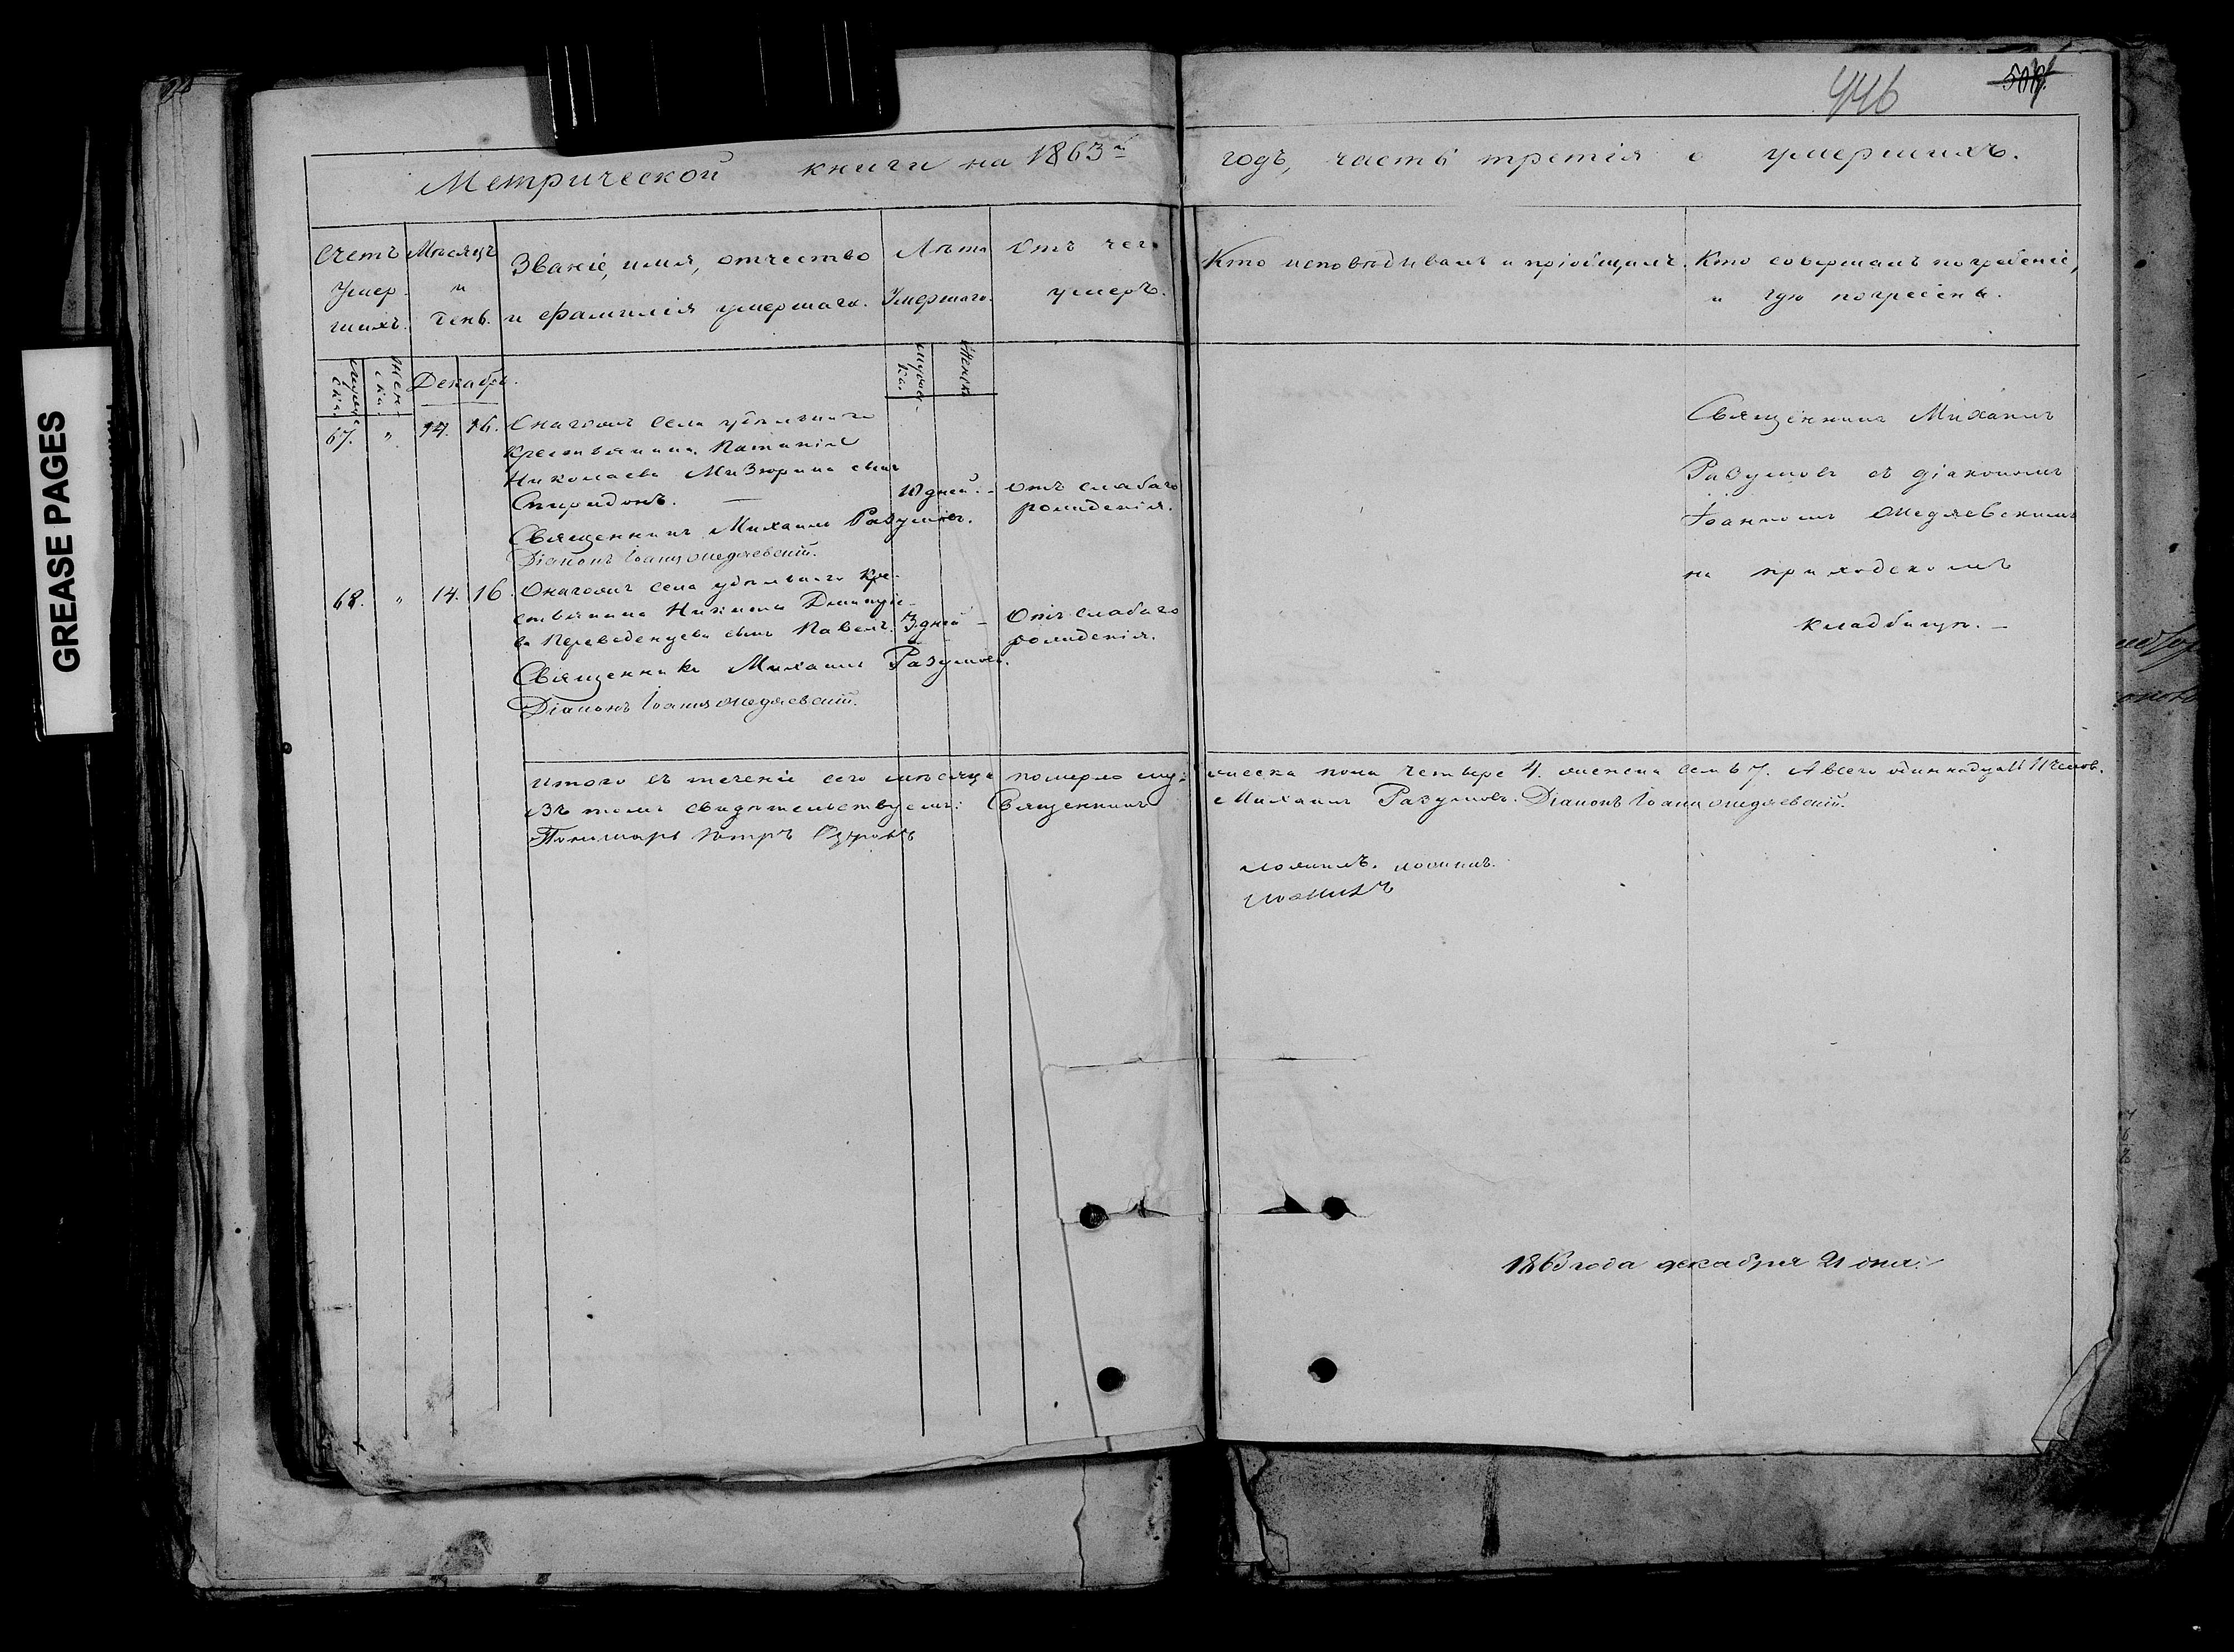 446
GREASE PAGES
Метрической книги на 1863й годъ, часть третія о умершихъ.
Счетъ Умер- шихъ.
Мѣсяцъ и день.
Званіе, имя, отчество и фамилія умершаго.
Лѣта Умершаго.
Отъ чего умеръ.
Кто исповѣдывалъ и пріобщилъ.
Кто совершалъ погребеніе, и гдѣ погребены.
Мужеска.
Женска.
Декабрь.
Мужеска.
Женска
67. " 14. 16. Онагожъ села удѣльнаго
крестьянина
Николаева Мизюрина сынъ
Спиридонъ. 10 дней. - отъ слабаго
рожденія.
Священникъ Михаилъ Разумовъ.
Діаконъ Іоаннъ Медяевскій.
68. " 14. 16. Онагожъ села удѣльнаго кре-
стьянина Никиты Димитріе-
ва Переведенцева сынъ Павелъ. 3 дней - Отъ слабаго
рожденія.
Священникъ Михаилъ Разумовъ.
Діаконъ Іоаннъ Медяевскій.
Священникъ Михаилъ
Разумовъ съ діакономъ
Іоанномъ Медяевскимъ
на приходскомъ
кладбищѣ. -
Итого въ теченіе сего мѣсяца померло мужеска пола четыре 4. женска семь 7. А всего одиннадцать 11 человѣ.
Въ томъ свидѣтельствуемъ: Священникъ Михаилъ Разумовъ. Діаконъ Іоаннъ Медяевскій.
Пономарь Петръ
1863 года декабря 21 дня.